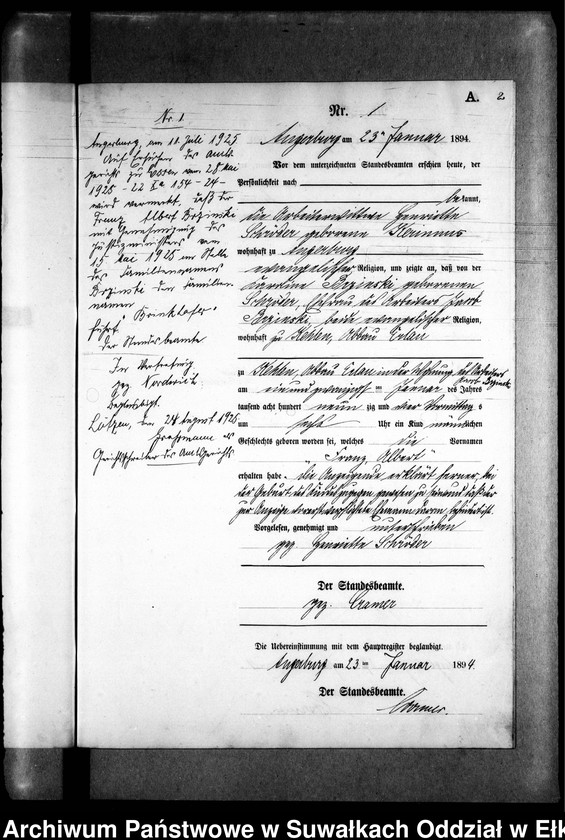 A. 2
Nr. 1
Nr. 1
Angerburg, am 11. Juli 1925
Auf Ersuchen des Amts-
gerichts zu Lötzen vom 28 Mai
1925 - 22 154 - 24 -
wird vermerkt, daß der
Franz Albert Brzinski
mit Genehmigung des
Justizministers vom
15 Mai 1925 an Stelle
des Familiennamens
Brzinski den Familien-
namen
führt.
Der Standesbeamte
In Vertretung
gez.
Beglaubigt.
Lötzen, den 24 August 1926
als
Gerichtsschreiber des Amtsgerichts
Angerburg am 23ten Januar 1894.
Vor dem unterzeichneten Standesbeamten erschien heute, der
Persönlichkeit nach
bekannt,
die Arbeiterwittwe Henriette
Schröder geborene
wohnhaft zu Angerburg
evangelischer Religion, und zeigte an, daß von der
Karoline Brzinski, geborenen
Schröder, Ehefrau des Arbeiters
Brzinski, beide evangelischer Religion,
wohnhaft zu Kehlen, Abbau
zu Kehlen, Abbau in der Wohnung des Arbeiters
Brzinski
am neunzehnten Januar des Jahres
tausend acht hundert neunzig und vier Vormittags
um sechs Uhr ein Kind männlichen
Geschlechts geboren worden sei, welches die Vornamen
„Franz Albert"
erhalten habe. Die Anzeigende erklärt ferner, bei
der Geburt des Kindes zugegen gewesen zu sein und daß der
zur Anzeige verpflichtete Ehemann daran behindert ist.
Vorgelesen, genehmigt und unterschrieben
gez. Henriette Schröder
Der Standesbeamte.
gez. Cramer
Die Uebereinstimmung mit dem Hauptregister beglaubigt.
Angerburg am 23ten Januar 1894.
Der Standesbeamte.
Cramer.
Archiwum Państwowe w Suwałkach Oddział w Ełk